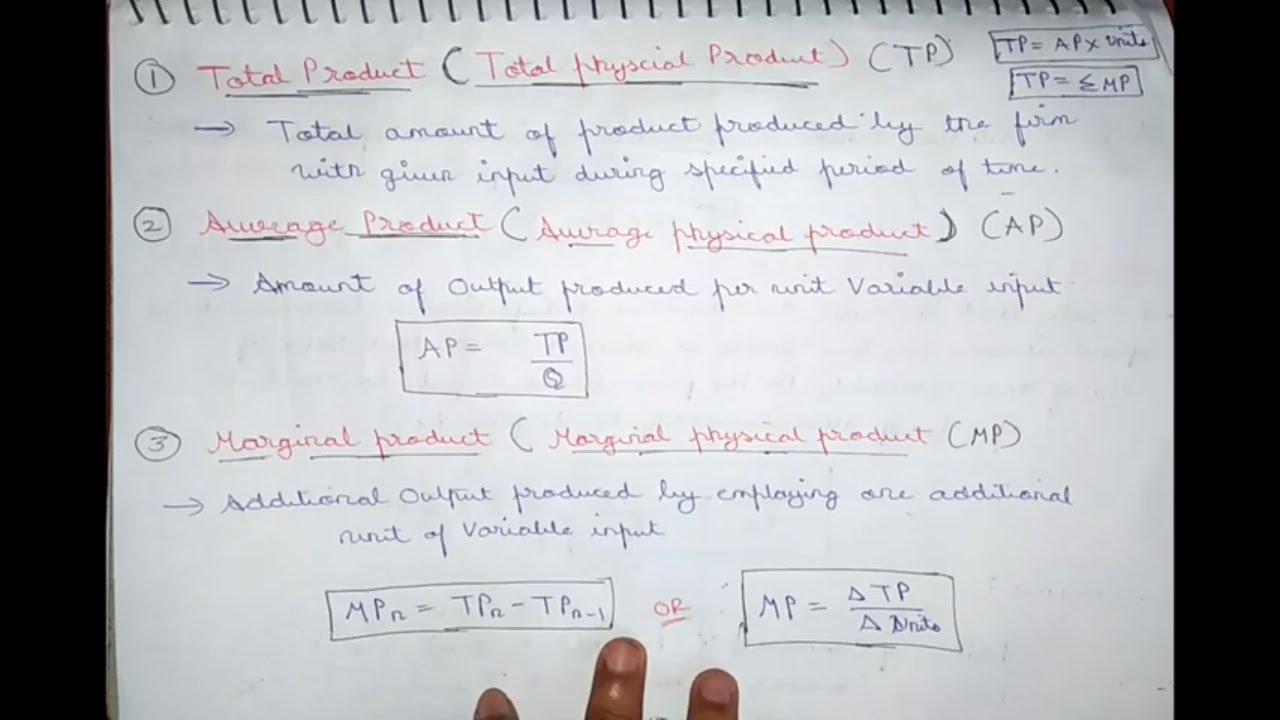 ① Total Product (Total physcial Product) (TP)
TP = AP x Units
TP = Σ MP
→ Total amount of product produced by the firm
with given input during specified period of time.
② Average Product (Average physical product) (AP)
→ Amount of Output produced per unit Variable input
AP = TP / Q
③ Marginal product (Marginal physical product (MP)
→ Additional Output produced by employing one additional
unit of Variable input
MPₙ = TPₙ - TPₙ₋₁ OR MP = Δ TP / Δ Units